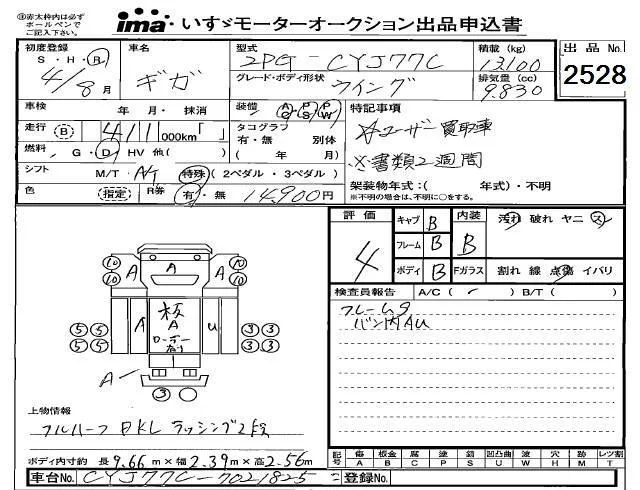 ◎赤太枠内は必ず
ボールペンで
ご記入下さい。
ima いすゞモーターオークション出品申込書
初度登録 車名 型式 2PG-CYJ77C 積載 (kg) 13100
S・H・R 4/8月 ギガ グレード・ボディ形状 ウイング 排気量 (cc) 9.830
出品No.
2528
車検 年 月・抹消 装備 AC・PS・PW 特記事項
走行 B 411 000km「 」 タコグラフ
有・無 別体
( 年 月)
☆ユーザー買取車
燃料 G・D・HV 他( )
※書類2週間
シフト M/T・A/T 特殊(2ペダル・3ペダル) 架装物年式:( 年式)・不明
※不明の場合は、不明に○をする。
色 指定 R券 有・無 14,900円
評価 キャブ B 内装 汚れ 破れ ヤニ ス
4 フレーム B B
ボディ B Fガラス 割れ 線 点傷 イバリ
検査員報告 A/C( ) B/T( )
フレームS
バン内AU
10 10 A A 10 10
10 10
A 板 A ローダー U
5 5 3 3
5 5 3 3
A
3
上物情報
フルハーフ BKL ラッシング2段
ボディ内寸約 長9.66m×幅2.39m×高2.56m
記号 傷 板金 腐 塗 錆 凹凸曲 凹 穴 跡 レツ割
A B C P S U W H M T
車台No. CYJ77C-7021825 登録No.